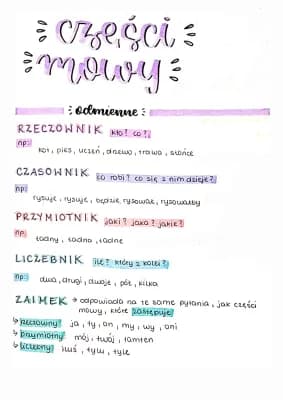 części
mowy
odmienne
RZECZOWNIK kto? co?
np:
kot, pies, uczeń, drzewo, trawa, słońce
CZASOWNIK co robi? co się z nim dzieje?
np:
rysuje, rysuję, będzie rysował, rysowałby
PRZYMIOTNIK jaki? jaka? jakie?
np:
ładny, ładna, ładne
LICZEBNIK ile? który z kolei?
np:
dwa, drugi, dwoje, pół, kilka
ZAIMEK → odpowiada na te same pytania, jak części
mowy, które zastępuje
rzeczowny: ja, ty, on, my, wy, oni
przymiotny: mój, twój, tamten
liczebny: iluś, tylu, tyle